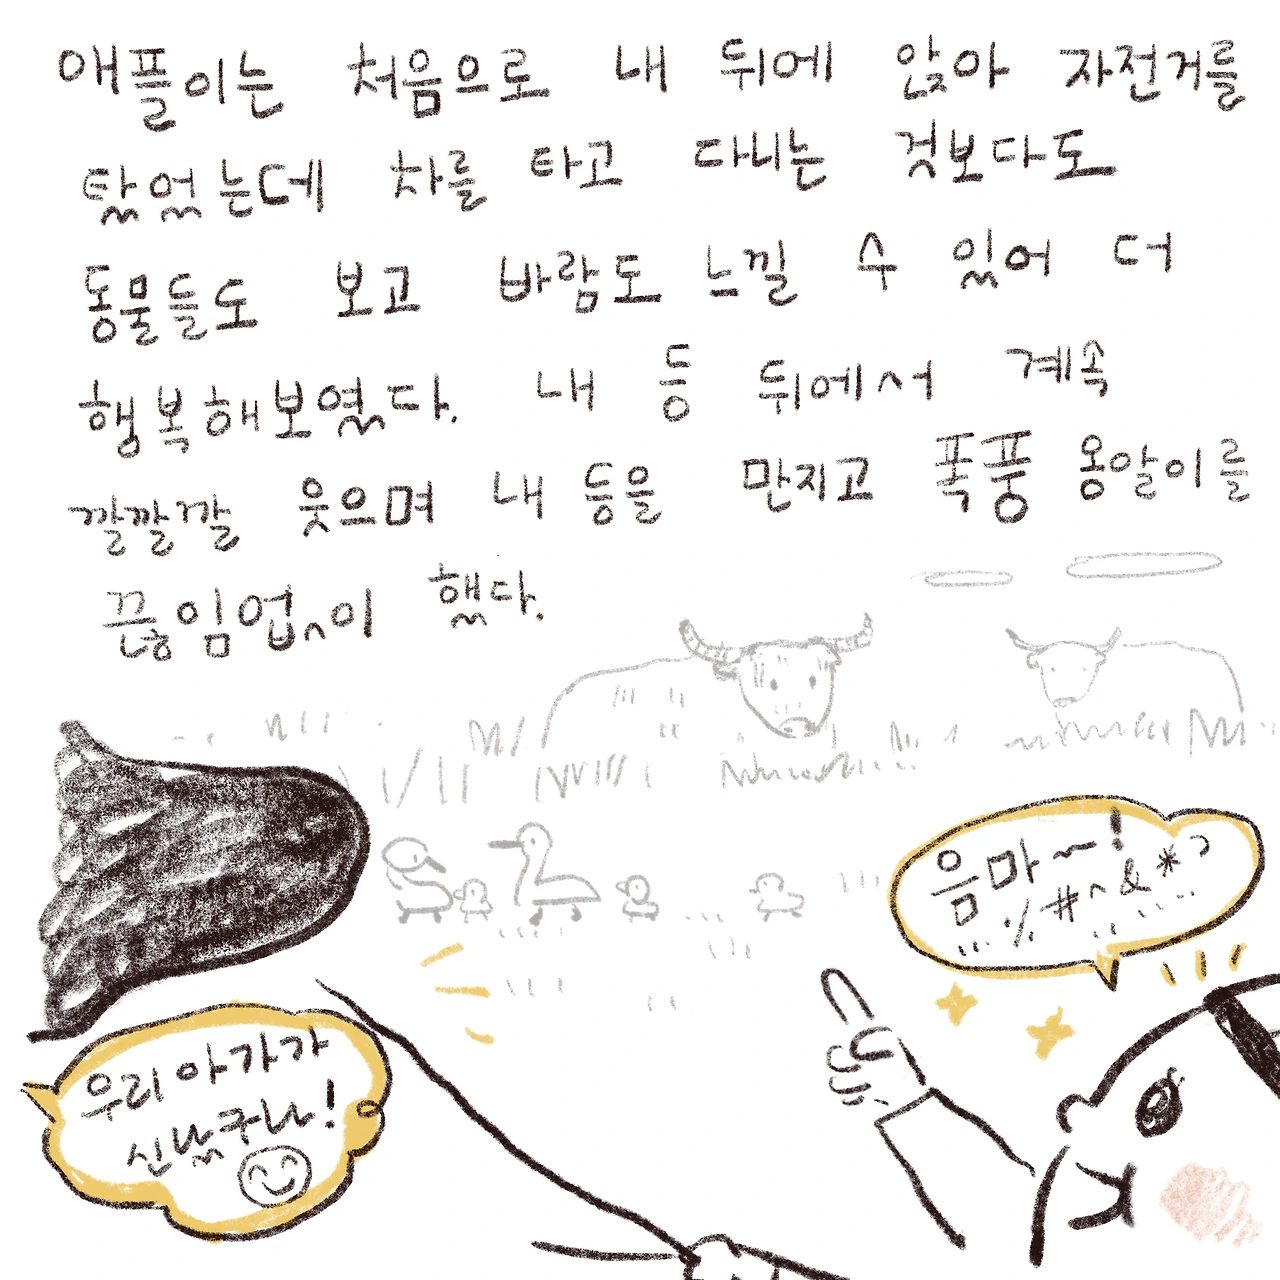 애플이는 처음으로 내 뒤에 앉아 자전거를
탔었는데 차를 타고 다니는 것보다도
동물들도 보고 바람도 느낄 수 있어 더
행복해보였다. 내 등 뒤에서 계속
깔깔깔 웃으며 내 등을 만지고 폭풍 옹알이를
끊임업ㅅ이 했다.
음마~!
%#^&*?
우리 아가가
신났구나!